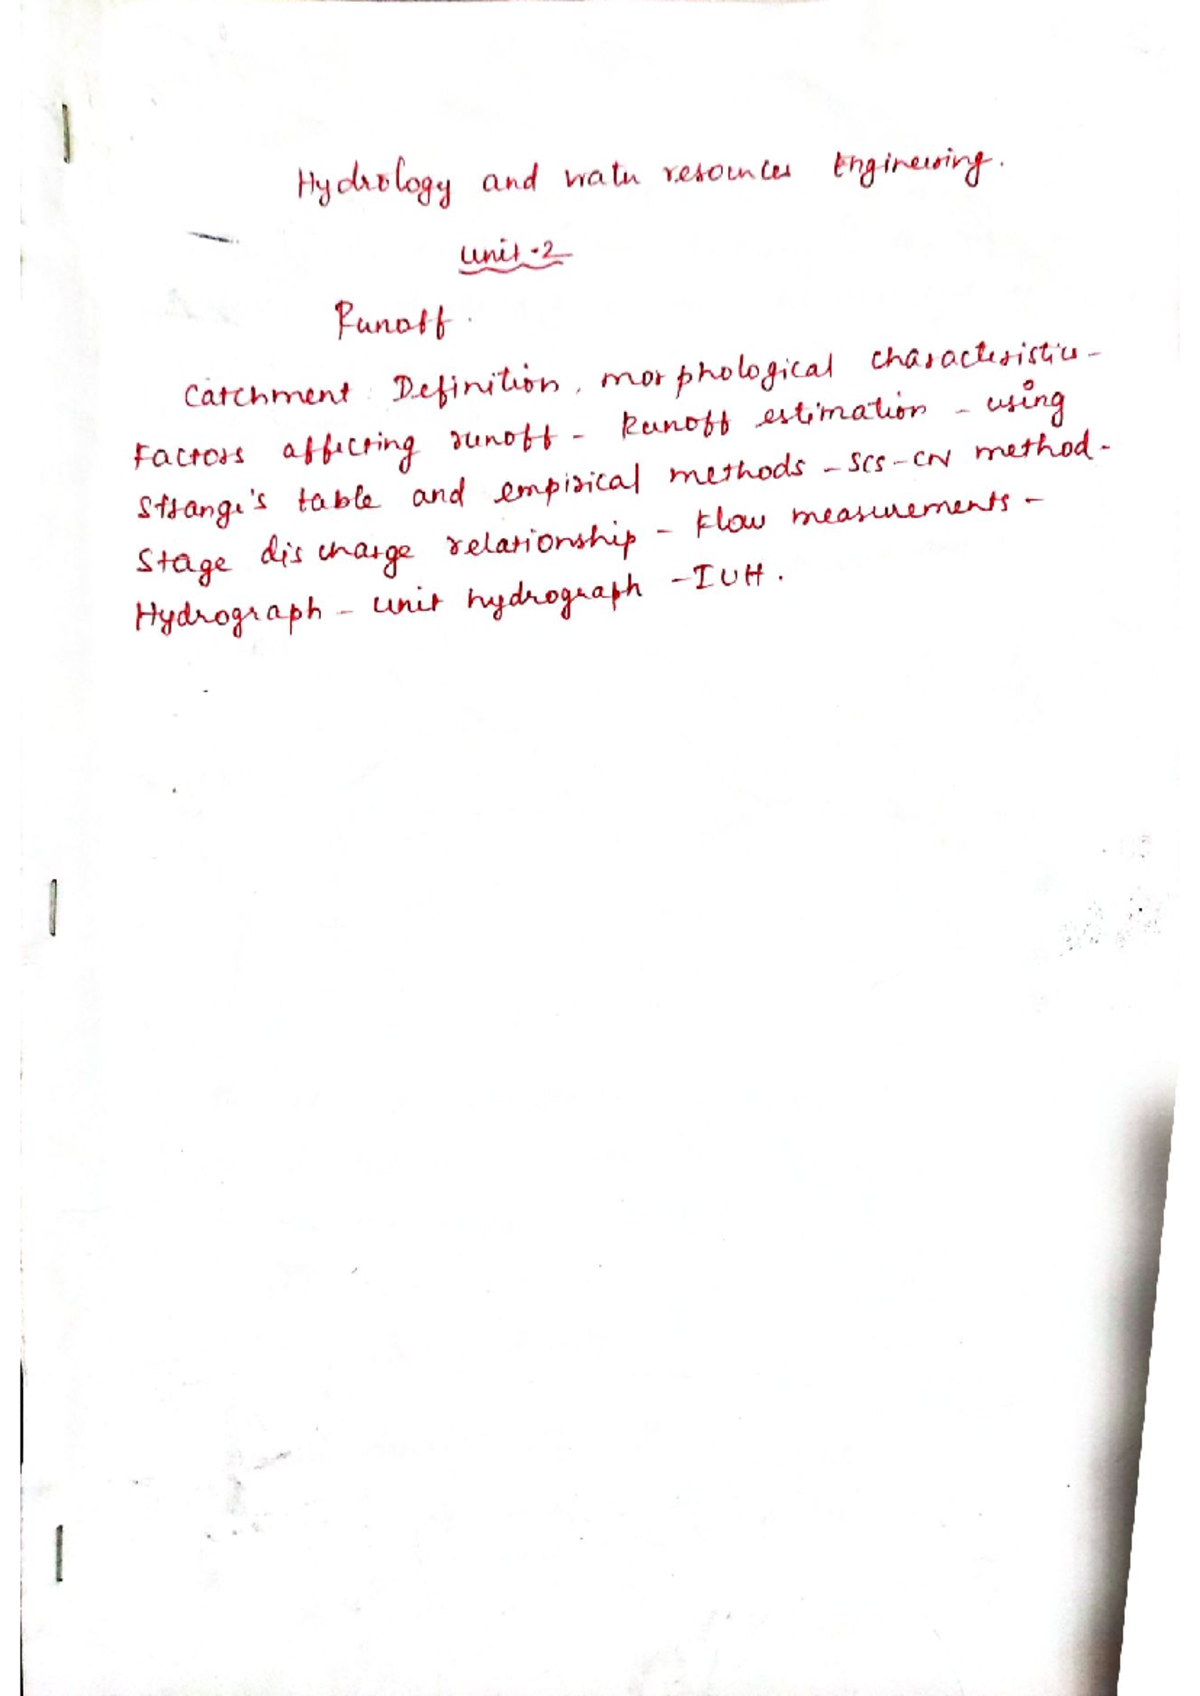 Hydrology and water resources Engineering.
Unit-2
Runoff.
Catchment : Definition, morphological characteristics -
Factors affecting runoff - Runoff estimation - using
Strange's table and empirical methods - SCS-CN method -
Stage discharge relationship - Flow measurements -
Hydrograph - unit hydrograph - IUH.